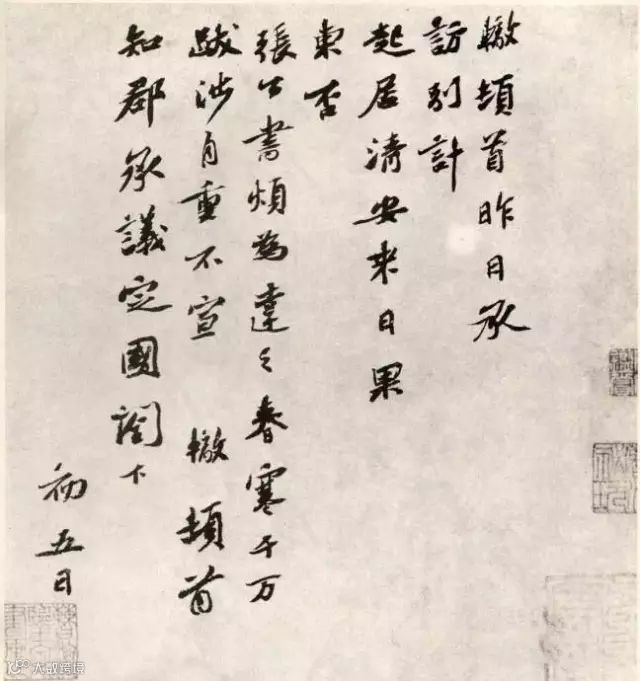 轍頓首昨日承
訪別計
起居清安來日果
東否
張公書煩為達之春寒千万
跋涉自重不宣 轍頓首
知郡承議定國閤下
初五日
大数跨境